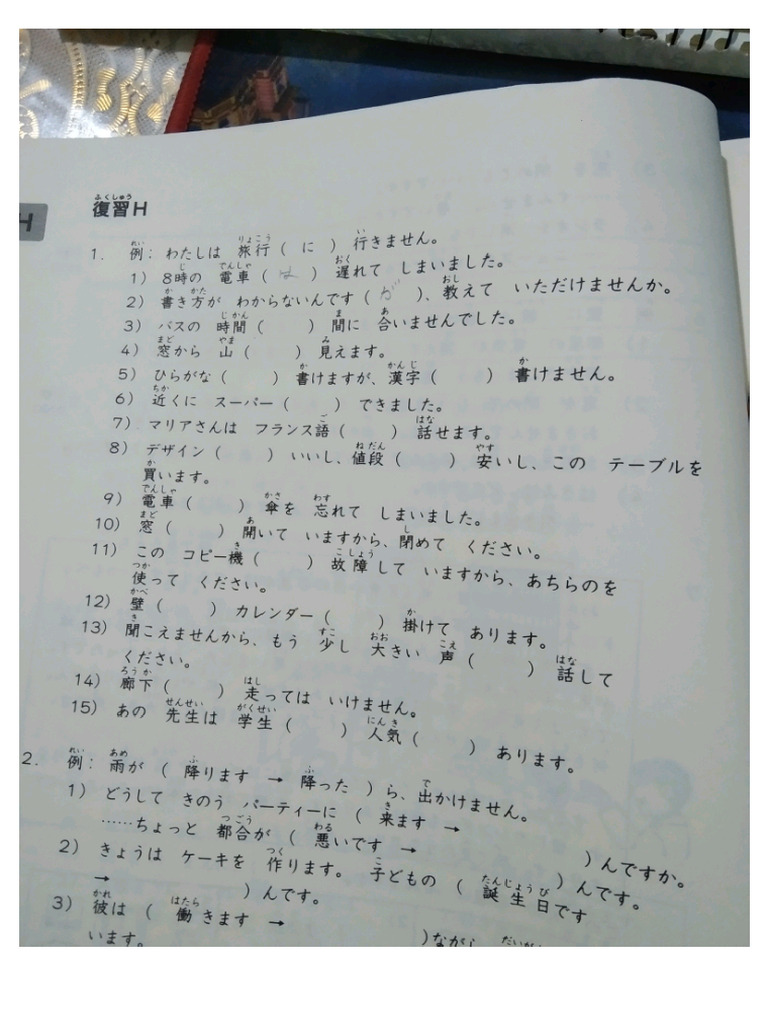 H
復習H
1. 例：わたしは 旅行（ に ）行きません。
1） 8時の 電車（ は ）遅れて しまいました。
2） 書き方が わからないんです（ が ）、教えて いただけませんか。
3） バスの 時間（ ）間に 合いませんでした。
4） 窓から 山（ ）見えます。
5） ひらがな（ ）書けますが、漢字（ ）書けません。
6） 近くに スーパー（ ）できました。
7） マリアさんは フランス語（ ）話せます。
8） デザイン（ ）いいし、値段（ ）安いし、この テーブルを
買います。
9） 電車（ ）傘を 忘れて しまいました。
10） 窓（ ）開いて いますから、閉めて ください。
11） この コピー機（ ）故障して いますから、あちらのを
使って ください。
12） 壁（ ）カレンダー（ ）掛けて あります。
13） 聞こえませんから、もう 少し 大きい 声（ ）話して
ください。
14） 廊下（ ）走っては いけません。
15） あの 先生は 学生（ ）人気（ ）あります。
2. 例：雨が（ 降ります → 降った ）ら、出かけません。
1） どうして きのう パーティーに（ 来ます → ）んですか。
……ちょっと 都合が（ 悪いです → ）んです。
2） きょうは ケーキを 作ります。子どもの（ 誕生日です
→ ）んです。
3） 彼は（ 働きます → ）ながら
います。